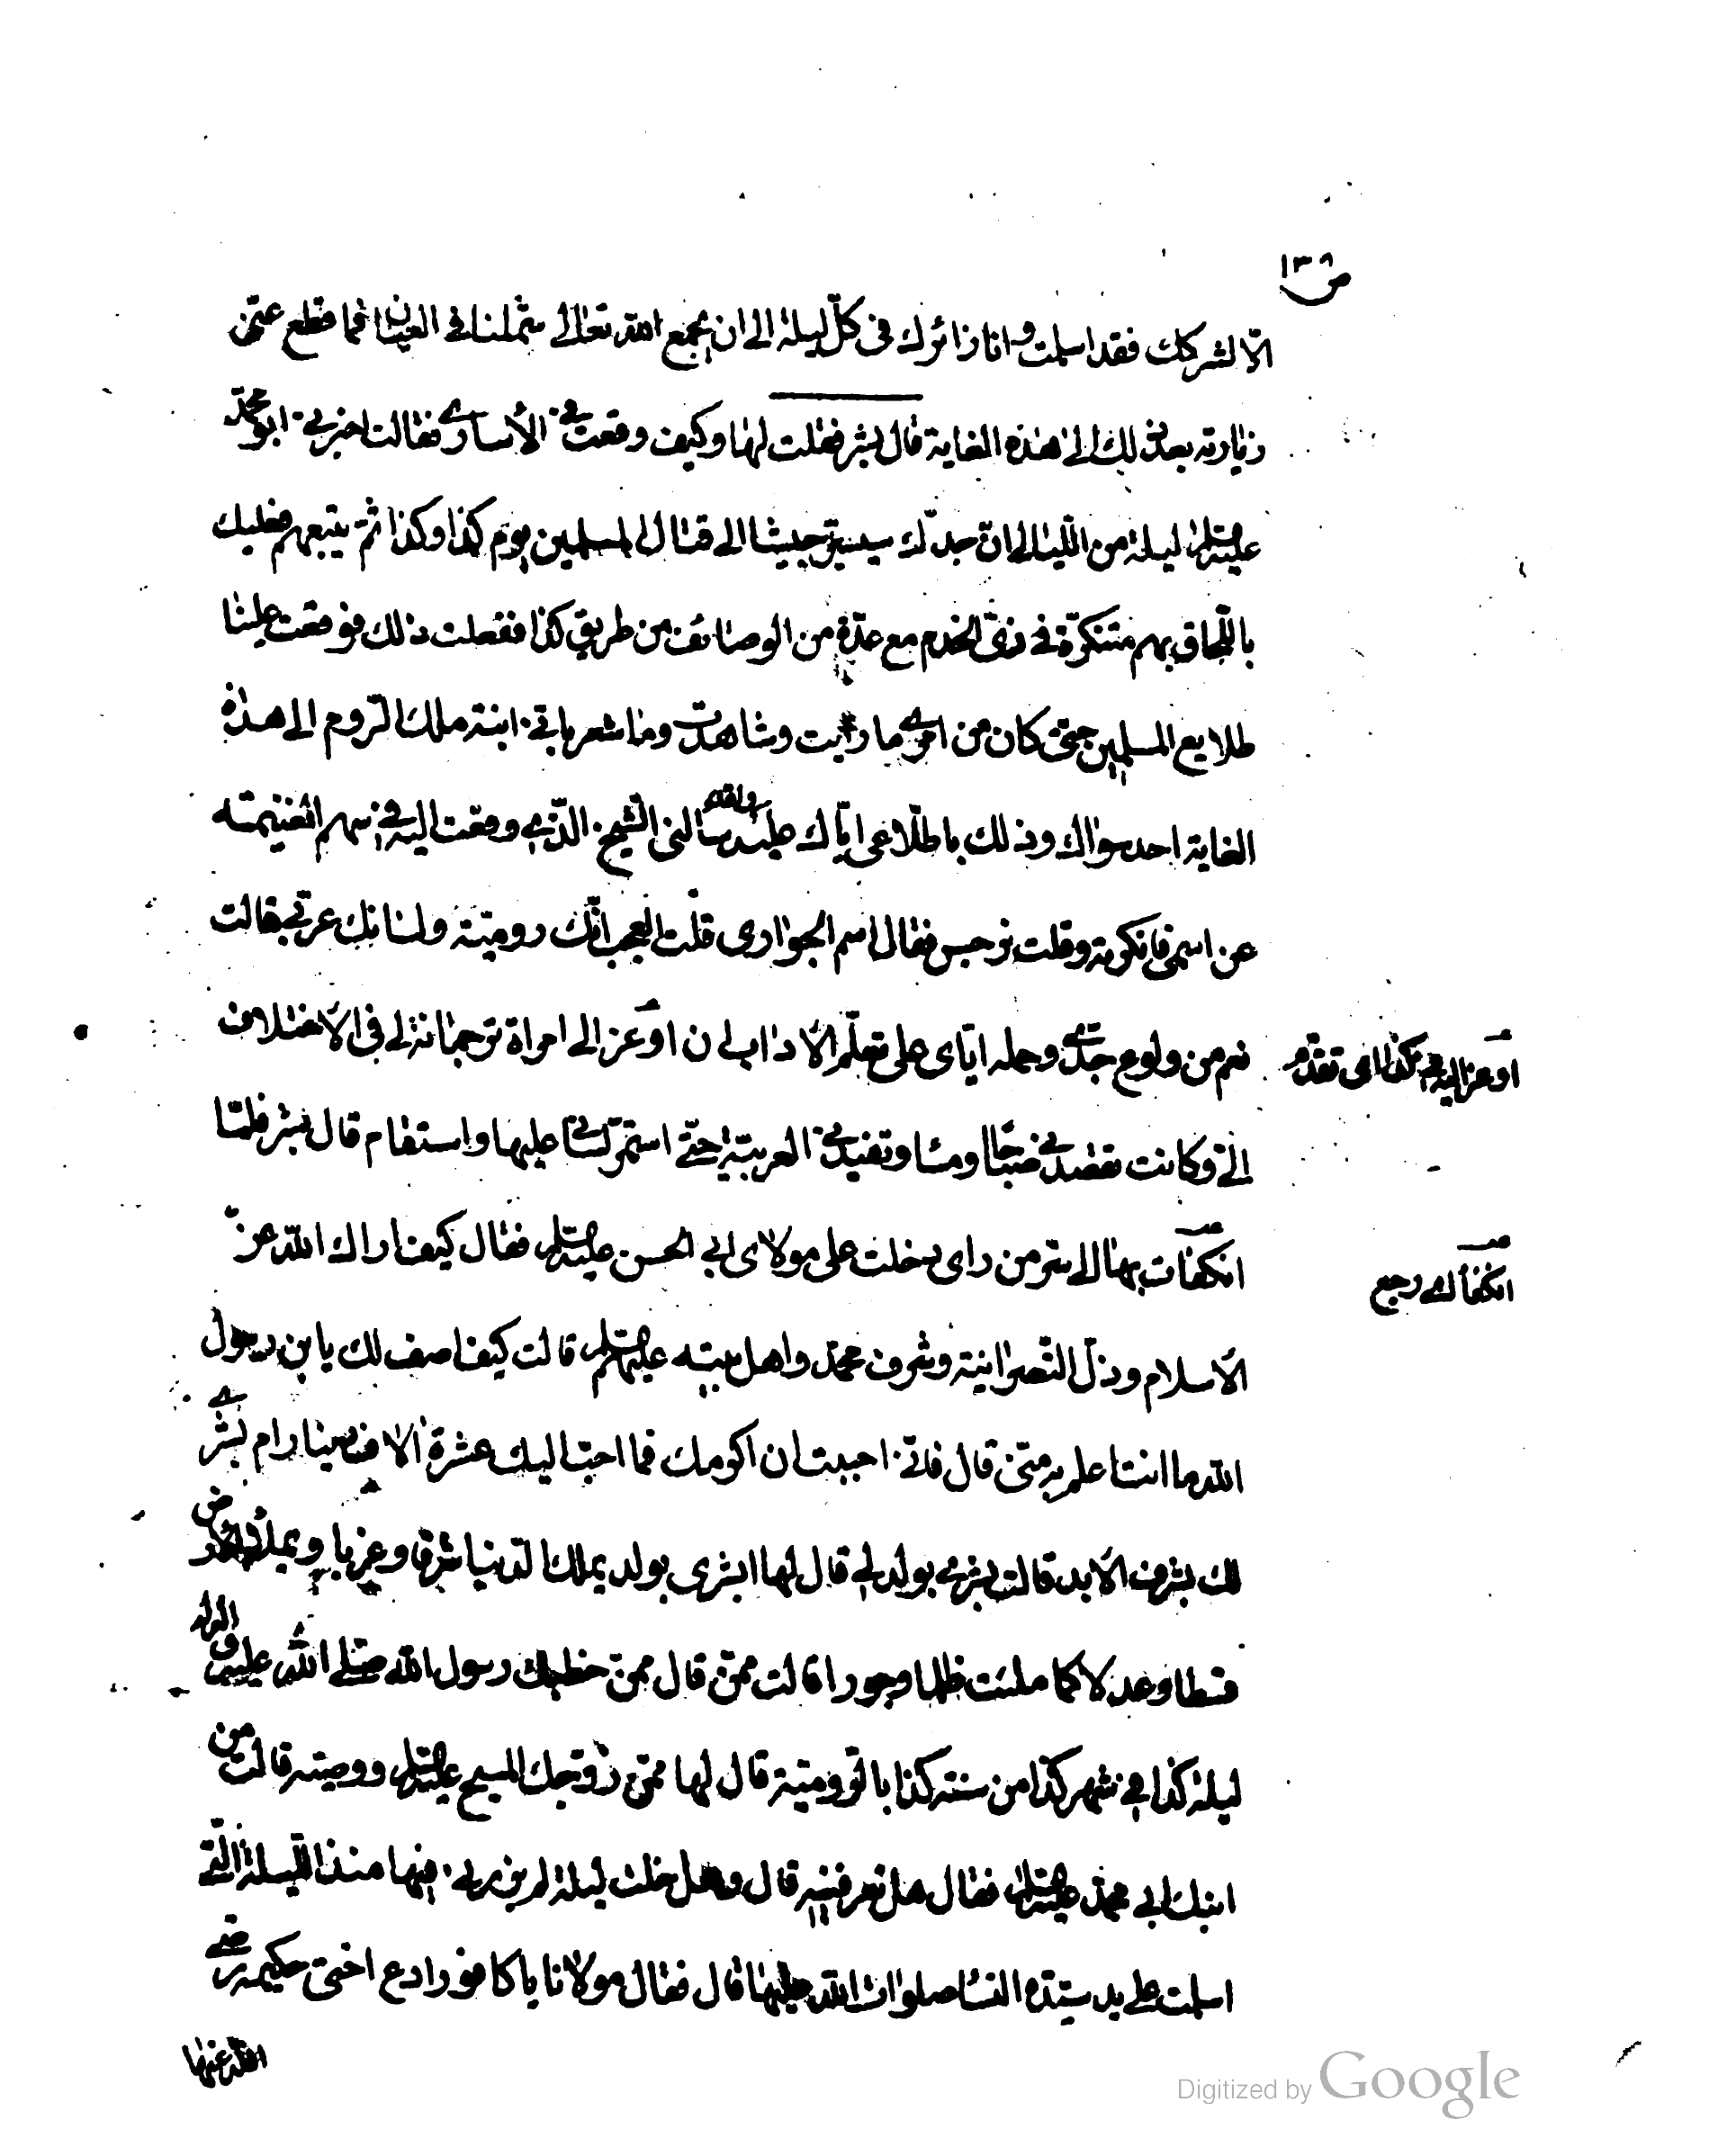 ص ١٣٨
الّا لشركك فقد اسلمت وانا زائرك فى كلّ ليلة الى ان يجمع الله تعالى شملنا فى العيان فما قطع عنّى
زيارته بعد ذلك الى هذه الغاية قال بشر فقلت لها وكيف وقعت فى الأسارى فقالت اخبرنى ابو محمّد
عليه السلام ليلة من الليالى انّ جدّك سيسيّر جيشا الى قتال المسلمين يوم كذا وكذا ثمّ يتبعهم فعليك
باللّحاق بهم متنكرّة فى زىّ الخدم مع عدّة من الوصائف من طريق كذا ففعلت ذلك فوقعت علينا
طلايع المسلمين حتى كان من امرى ما رايت وشاهدت وما شعر بانّى ابنة ملك الرّوم الى هذه
الغاية احد سواك وذلك باطّلاعى ايّاك عليه ولقد سالنى الشّيخ الذّى وقعت اليه فى سهم الغنيمة
عن اسمى فانكرته وقلت نرجس فقال اسم الجوارى قلت العجب انّك روميّة ولسانك عربى قالت
نعم من ولوع جدّى وحمله ايّاى على تعلّم الأداب ان اوعز الى امراة ترجمانة لى فى الأختلاف
الىّ وكانت تقصدنى صباحا ومسا وتفيدنى العربيّة حتّى استمرّ لسانى عليها واستقام قال بشر فلمّا
انكفأت بها الى سرّ من راى دخلت على مولاى ابى الحسن عليه السلام فقال كيف اراك الله عزّ
الأسلام وذلّ النّصرانية وشرف محمّد واهل بيته عليهم السلام قالت كيف اصف لك يا بن رسول
الله ما انت اعلم به منّى قال فانّى احببت ان اكرمك فما احبّ اليك عشرة الاف دينار ام بشرى
لك بشرف الأبد قالت بشرى بولد لى قال لها ابشرى بولد يملك الدّنيا شرقا وغربا ويملأ الأرض
قسطا وعدلا كما ملئت ظلما وجورا قالت ممّن قال ممن خطبك رسول الله صلى الله عليه واله
ليلة كذا فى شهر كذا من سنة كذا بالرّوميّة قال لها ممّن زوّجك المسيح عليه السلام ووصيّه قالت من
ابنك ابى محمّد عليه السلام فقال هل تعرفينه قال وهل خلت ليلة لم يزرنى فيها منذ الليلة الّتى
اسلمت على يد سيّدة النسا صلوات الله عليها قال فقال مولانا يا كافور ادع اختى حكيمه رضى
الله عنها
اوعز اليه فى كذا اى تقدّم
انكفأ اى رجع
Digitized by Google